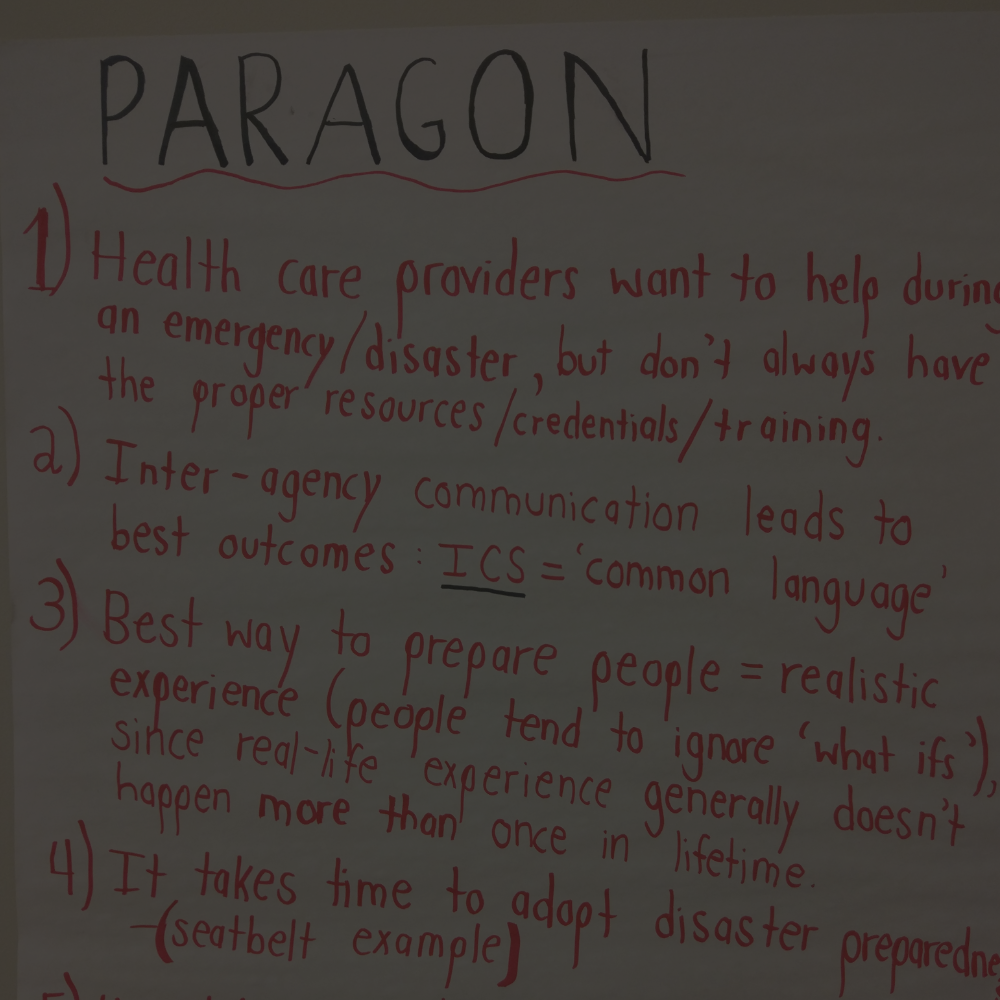 PARAGON
1) Health care providers want to help during
an emergency/disaster, but don't always have
the proper resources/credentials/training.
2) Inter-agency communication leads to
best outcomes: ICS = 'common language'
3) Best way to prepare people = realistic
experience (people tend to ignore 'what ifs'),
since real-life experience generally doesn't
happen more than once in lifetime.
4) It takes time to adopt disaster preparedne
-(seatbelt example)
5)